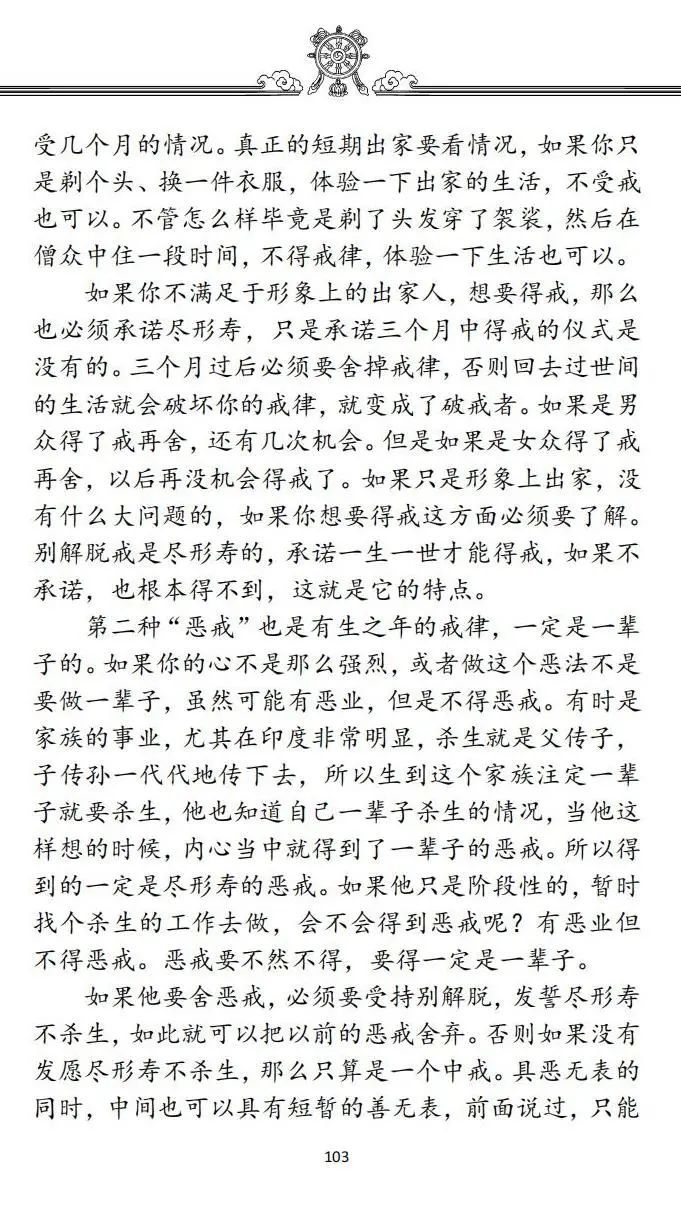 受几个月的情况。真正的短期出家要看情况，如果你只
是剃个头、换一件衣服，体验一下出家的生活，不受戒
也可以。不管怎么样毕竟是剃了头发穿了袈裟，然后在
僧众中住一段时间，不得戒律，体验一下生活也可以。
如果你不满足于形象上的出家人，想要得戒，那么
也必须承诺尽形寿，只是承诺三个月中得戒的仪式是
没有的。三个月过后必须要舍掉戒律，否则回去过世间
的生活就会破坏你的戒律，就变成了破戒者。如果是男
众得了戒再舍，还有几次机会。但是如果是女众得了戒
再舍，以后再没机会得戒了。如果只是形象上出家，没
有什么大问题的，如果你想要得戒这方面必须要了解。
别解脱戒是尽形寿的，承诺一生一世才能得戒，如果不
承诺，也根本得不到，这就是它的特点。
第二种“恶戒”也是有生之年的戒律，一定是一辈
子的。如果你的心不是那么强烈，或者做这个恶法不是
要做一辈子，虽然可能有恶业，但是不得恶戒。有时是
家族的事业，尤其在印度非常明显，杀生就是父传子，
子传孙一代代地传下去，所以生到这个家族注定一辈
子就要杀生，他也知道自己一辈子杀生的情况，当他这
样想的时候，内心当中就得到了一辈子的恶戒。所以得
到的一定是尽形寿的恶戒。如果他只是阶段性的，暂时
找个杀生的工作去做，会不会得到恶戒呢？有恶业但
不得恶戒。恶戒要不然不得，要得一定是一辈子。
如果他要舍恶戒，必须要受持别解脱，发誓尽形寿
不杀生，如此就可以把以前的恶戒舍弃。否则如果没有
发愿尽形寿不杀生，那么只算是一个中戒。具恶无表的
同时，中间也可以具有短暂的善无表，前面说过，只能
103